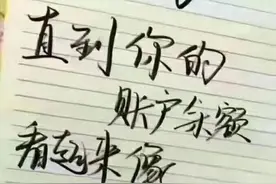 直到你的
账户余额
看起来像